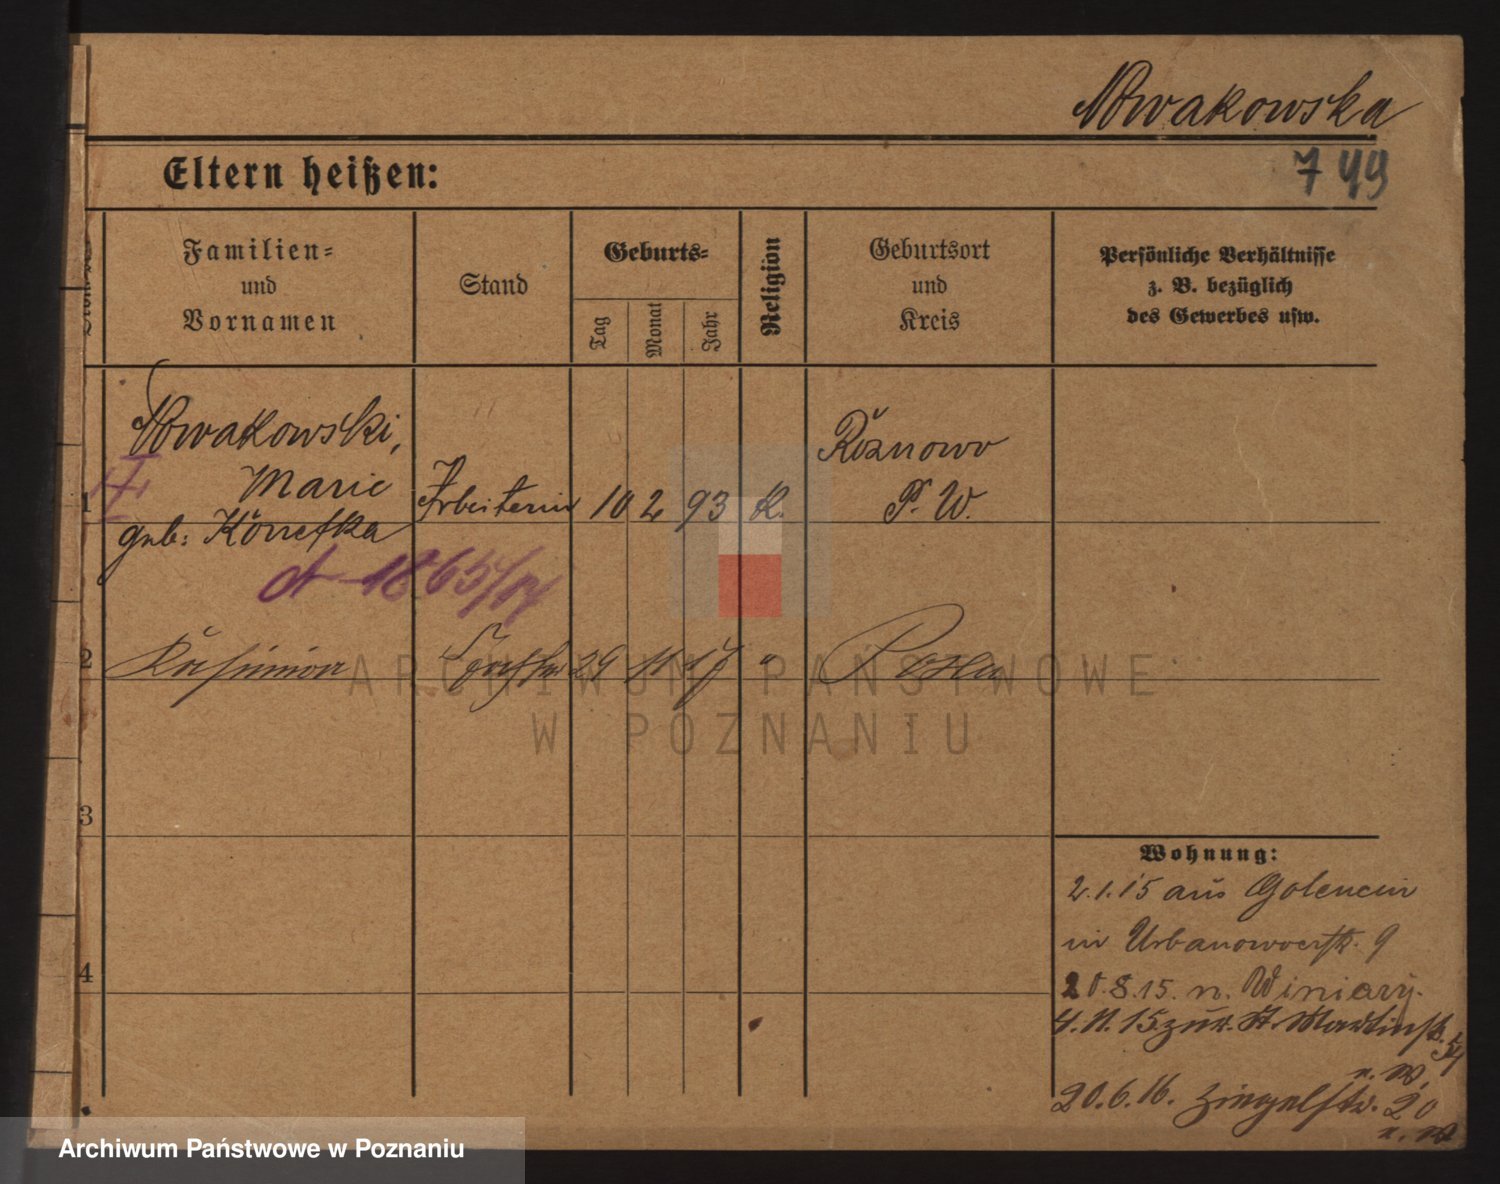 Nowakowska
7 49
Eltern heißen:
Familien=
und
Vornamen
Stand
Geburts=
Tag
Monat
Jahr
Religion
Geburtsort
und
Kreis
Persönliche Verhältnisse
z. B. bezüglich
des Gewerbes usw.
Nowakowski,
Marie
geb: 
1 Arbeiterin 10 2 93 K.
Rożnowo
P. W.
2 Kasimira 29 11 17 " Posen
3
4
Wohnung:
2.1.15 aus Golencin
in Urbanowerstr. 9
20.8.15. n. Winiary.
4.11.15 zur. St Martinstr.
n. W.
20.6.16. Ziegelstr. 20
n. W
ARCHIWUM PAŃSTWOWE
W POZNANIU
Archiwum Państwowe w Poznaniu